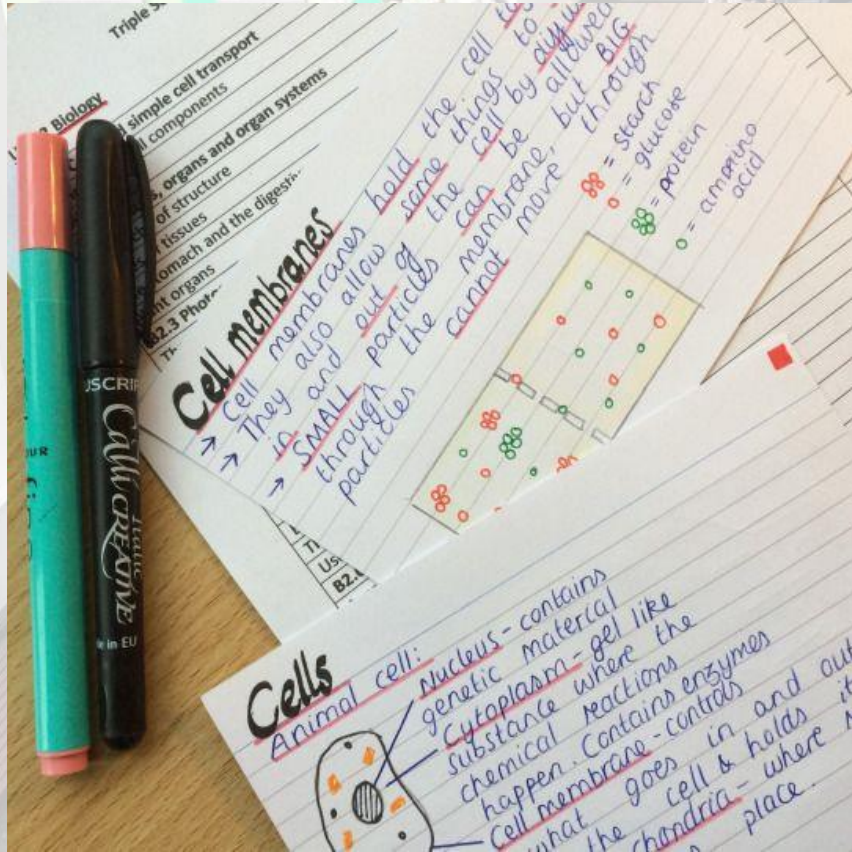 Triple
Biology
simple cell transport
components
organs and organ systems
of structure
tissues
stomach and the digesti
organs
B2.3 Phot
Cell membranes
→ Cell membranes hold the cell
→ They also allow some things to
in and out of the cell by
→ SMALL particles can be allowed
through the membrane, but BIG
particles cannot move through
= starch
= glucose
= protein
= amino
acid
USCRIP
Calli
CREATIVE
Italic
in EU
UR
Us
B2.
Cells
Animal cell:
Nucleus - contains
genetic material
Cytoplasm - gel like
substance where the
chemical reactions
happen. Contains enzymes
Cell membrane - controls
what goes in and out
the cell & holds it
chondria - where
place.